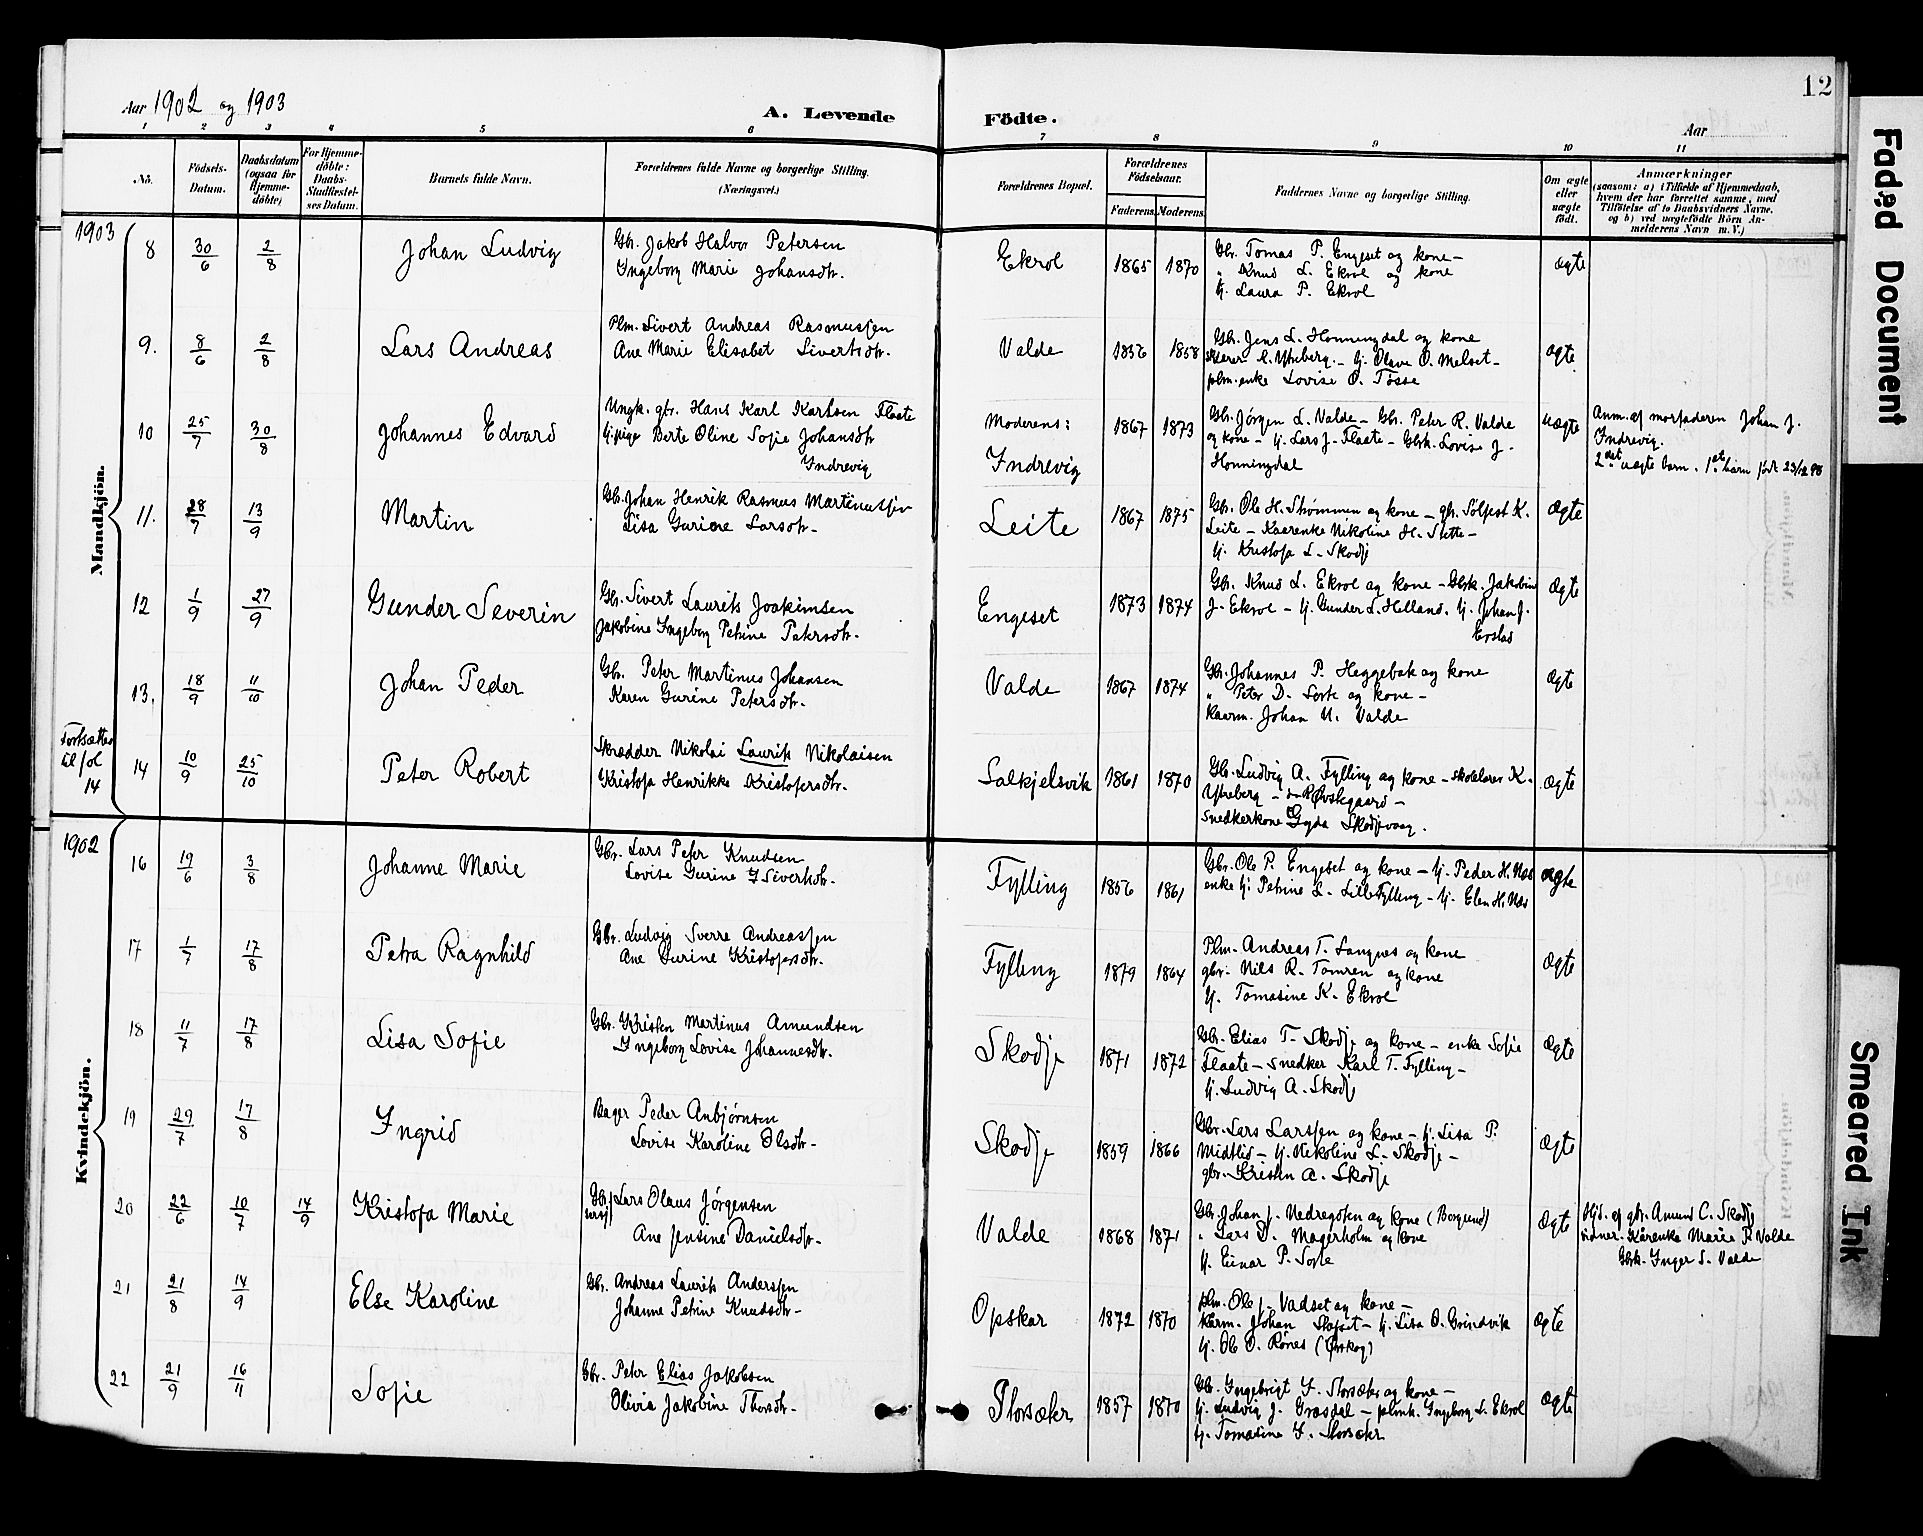 12
Aar 1902 og 1903
A. Levende Födte.
Aar
1 2 3 4 5 6 7 8 9 10 11
No.
Födsels-Datum.
Daabsdatum (ogsaa for Hjemme-döbte)
For Hjemme-döbte: Daabs-Stadfæstel-ses Datum.
Barnets fulde Navn.
Forældrenes fulde Navne og borgerlige Stilling. (Næringsvei.)
Forældrenes Bopæl.
Forældrenes Födselsaar.
Faderens. Moderens.
Faddernes Navne og borgerlige Stilling.
Om ægte eller uægte födt.
Anmærkninger
(saasom: a) i Tilfælde af Hjemmedaab,
hvem der har forrettet samme, med
Tilföielse af to Daabsvidners Navne.
og b) ved uægtefödte Börn An-
melderens Navn m. V.)
1903
Mandkjön.
8 30/6 2/8 Johan Ludvig
Gbr. Jakob Halvor Petersen
Ingeborg Marie Johansdtr.
Ekrol 1865 1870
Gbr. Tomas P. Engeset og kone –
" Knud L. Ekrol og kone
Laura P. Ekrol
ægte
9. 8/6 2/8 Lars Andreas
Plm. Sivert Andreas Rasmussen
Ane Marie Elisabet Sivertsdtr.
Valde 1856 1858
Gbr. Jens L. Honningdal og kone
Ytreberg – Olave O. Melset –
plm. enke Lovise O. Tøsse
ægte
10 25/7 30/8 Johannes Edvard
Ungk. gbr. Hans Karl Karlsen Flaate
pige Berte Oline Sofie Johansdtr
Indrevig
Moderens:
Indrevig
1867 1873
Gbr. Jørgen L. Valde – Gbr. Peter R. Valde
og kone – Lars J. Flaate – Gbrk. Lovise J.
Honningdal
uægte
Anm. af morfaderen Johan J.
Indrevig.
2det uægte barn. 1ste barn født 23/12 98
11. 28/7 13/9 Martin
Gbr. Johan Henrik Rasmus Martinussen
Lisa Gurine Larsdtr –
Leite 1867 1875
Gbr. Ole H. Strømmen og kone – gbr. Sølfest K.
Leite – Kaarenke Nikoline H. Slette –
Kristofa L. Skodj
ægte
12 1/9 27/9 Gunder Severin
Gbr. Sivert Laurits Joakimsen
Jakobine Ingeborg Petrine Petersdtr.
Engeset 1873 1874
Gbr. Knud L. Ekrol og kone – Gbrk. Jakobine
J. Ekrol – Gunder L. Helland. Johan J.
Erstad
ægte
13. 18/9 11/10 Johan Peder
Gbr. Peter Martinus Johansen
Karen Gurine Petersdtr.
Valde 1867 1874
Gbr. Johannes P. Heggebak og kone
" Peter D. Sorte og kone –
kaarm. Johan N. Valde
ægte
Fortsættes
til fol
14
14 10/9 25/10 Peter Robert
Skrædder Nikolai Laurits Nikolaisen
Kristofa Henrikke Kristofersdtr.
Salkjelsvik 1861 1870
Gbr. Ludvig A. Fylling og kone – skolelærer K.
Ytreberg – Øvstegaard –
snedkerkone Gyda Skodjevaag.
ægte
1902
Kvindekjön.
16 19/6 3/8 Johanne Marie
Gbr. Lars Peter Knudsen
Lovise Gurine I Sivertsdtr.
Fylling 1856 1861
Gbr. Ole P. Engeset og kone – Peder H. Næs
enke Petrine L. Lillefylling – Elen H. Næs
ægte
17 1/7 17/8 Petra Ragnhild
Gbr. Ludvig Sverre Andreassen
Ane Gurine Kristofersdtr.
Fylling 1879 1864
Plm. Andreas T. Langnes og kone
gbr. Nils R. Tomren og kone
Tomasine K. Ekrol
ægte
18 11/7 17/8 Lisa Sofie
Gbr. Kristen Martinus Amundsen
Ingeborg Lovise Johannesdtr.
Skodje 1871 1872
Gbr. Elias T. Skodje og kone – enke Sofie
Flaate – snedker Karl T. Fylling –
Ludvig A. Skodj
ægte
19 29/7 17/8 Ingrid
Bager Peder Anbjørnsen
Lovise Karoline Olsdtr –
Skodje 1859 1866
Gbr. Lars Larssen og kone – Lisa P.
Midtlid – Nikoline L. Skodje –
gbr. Kristen A. Skodje
ægte
20 22/6 10/7 14/9 Kristofa Marie
Gbr. Lars Olaus Jørgensen
Ane Jensine Danielsdtr.
Valde 1868 1871
Gbr. Johan J. Nedregoten og kone (Borgund)
" Lars D. Magerholm og kone
Einar P. Sorte
ægte
Hjd. af gbr. Amund C. Skodje
vidner. Kårenka Marie R Valde
Gbrk. Inger S. Valde
21 21/8 14/9 Else Karoline
Gbr. Andreas Laurits Anderssen
Johanne Petrine Knudsdtr –
Opskar 1872 1870
plm. Ole J. Vadset og kone –
Johan – Lisa O. Grindvik
Ole O. Rønes (Ørskog)
ægte
22 21/9 16/11 Sofie
Gbr. Peter Elias Jakobsen
Olivia Jakobine Thorsdtr –
Storsæter 1857 1870
Gbr. Ingebrigt I. Storsæter og kone –
Ludvig J. Grasdal – Ingeborg L. Ekrol
Tomasine I. Storsæter
ægte
Faded Document
Smeared Ink